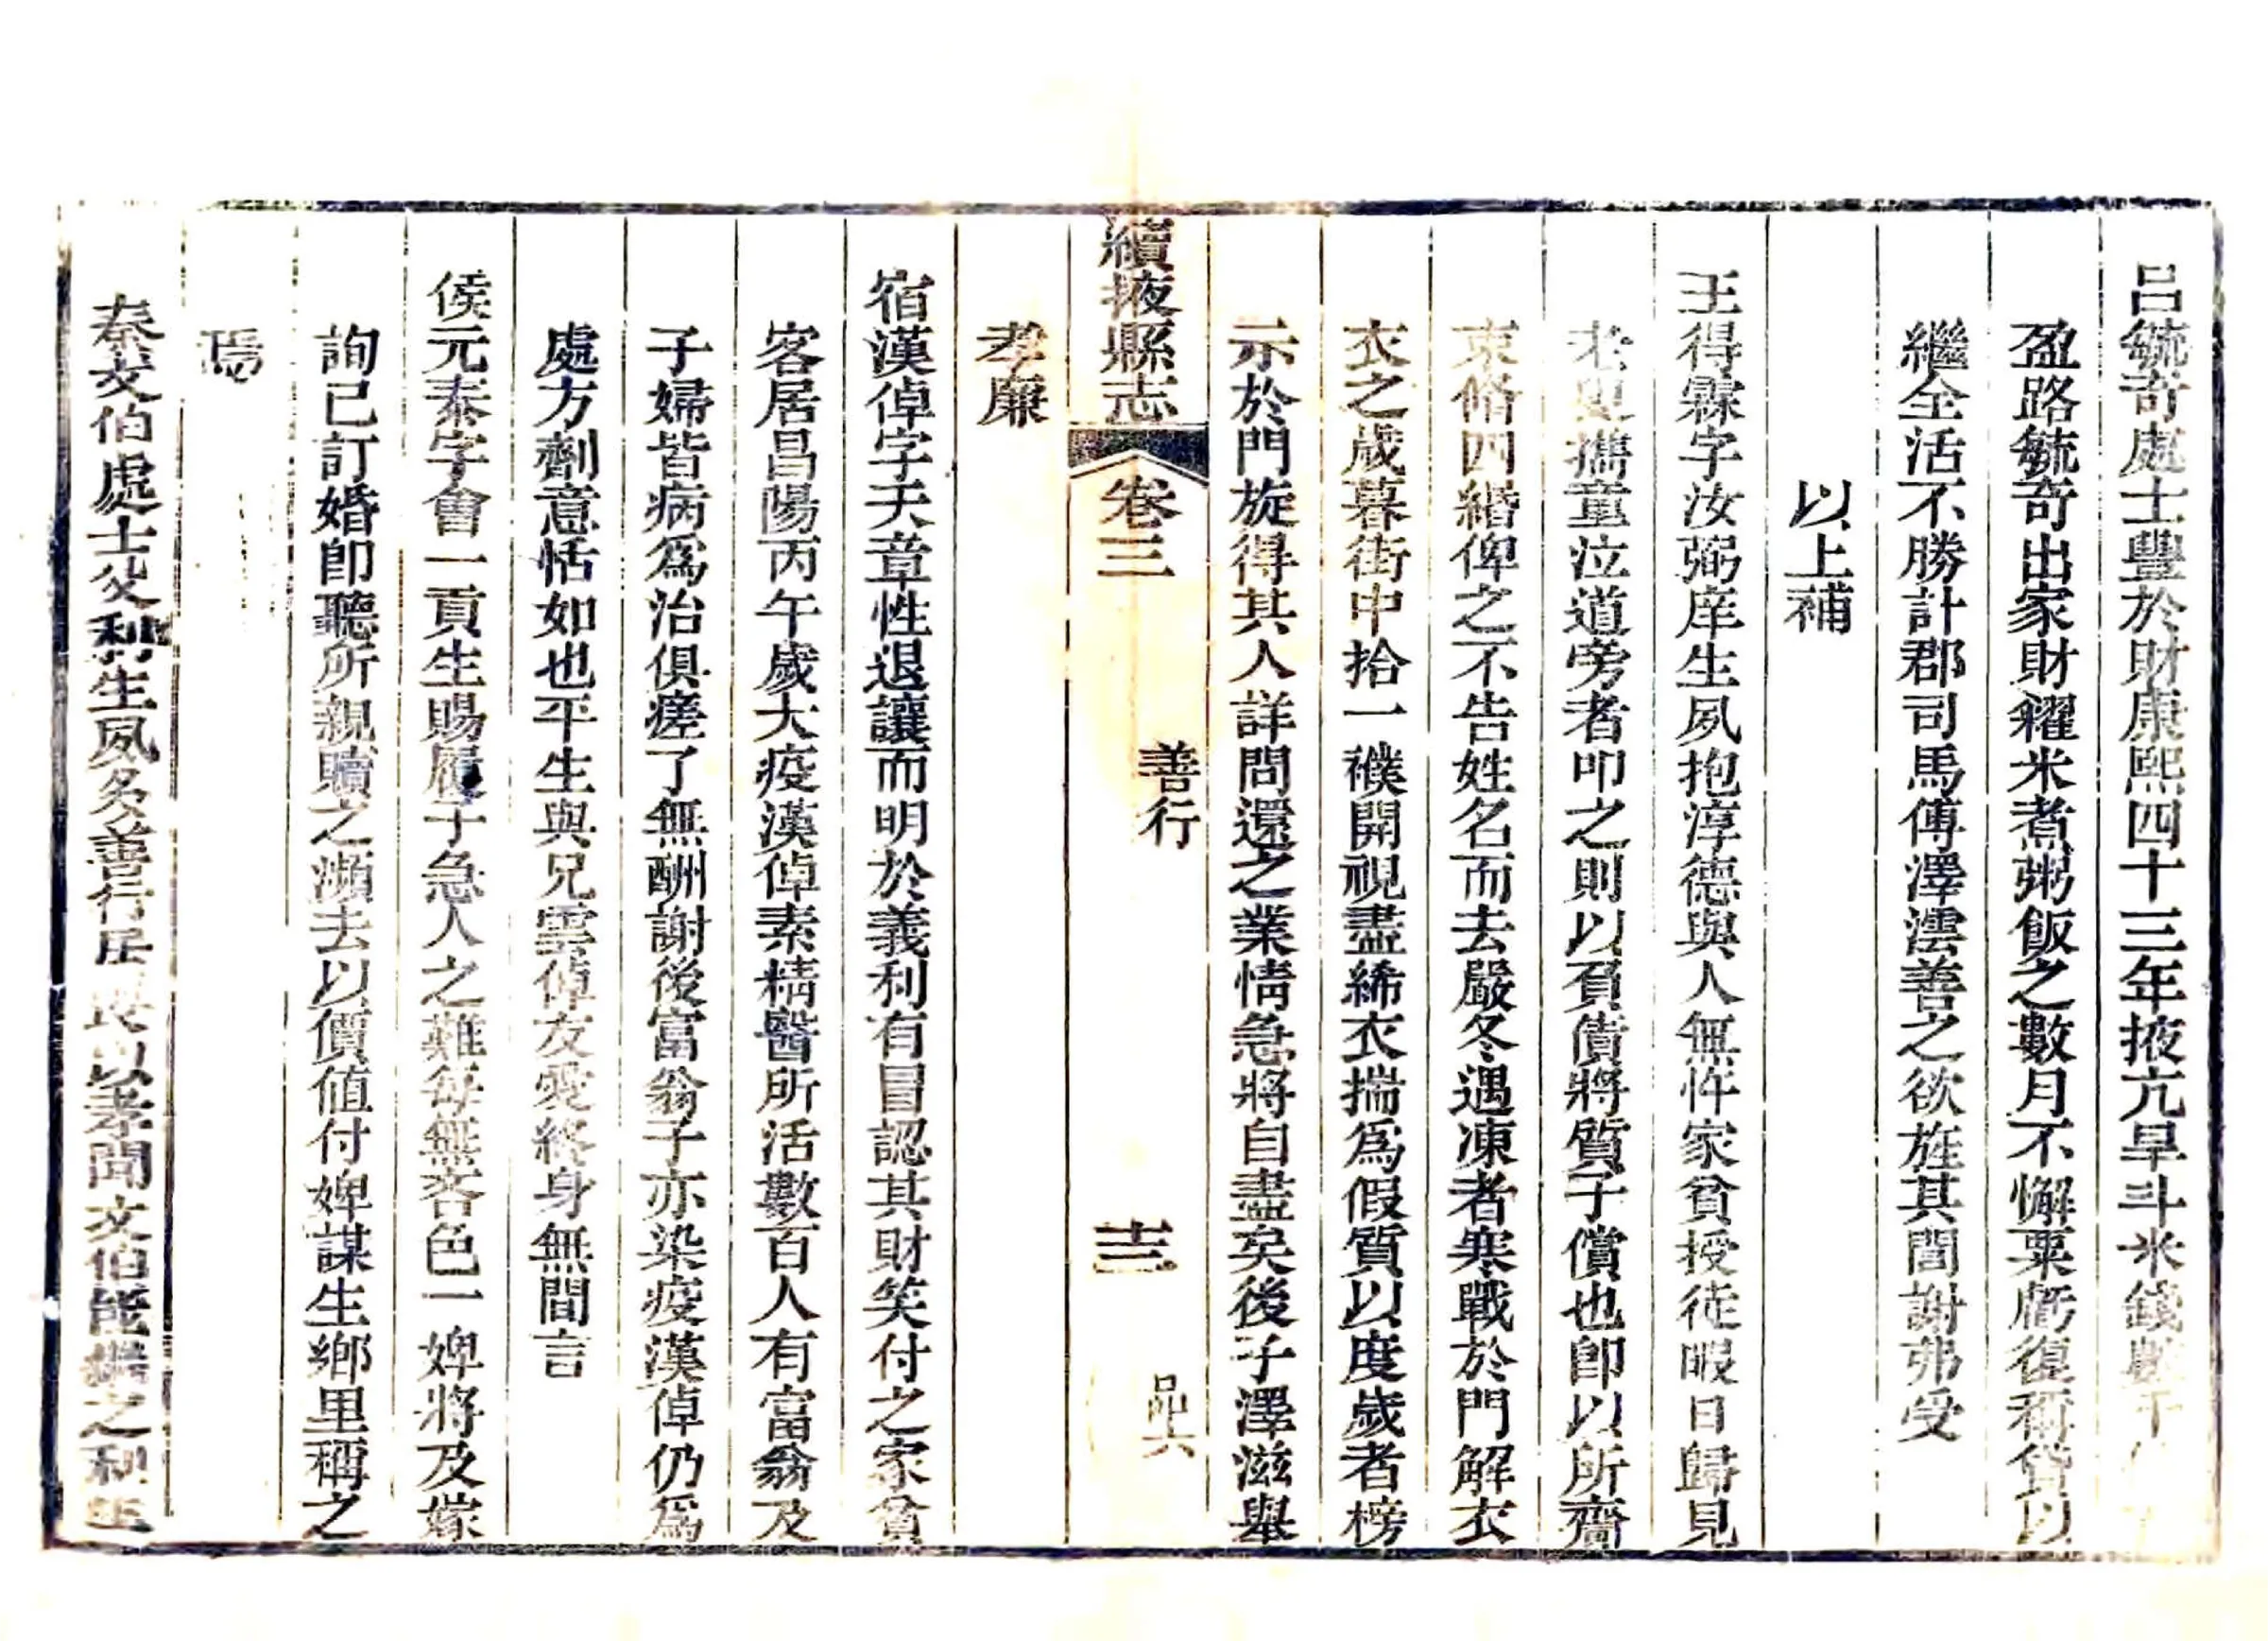 呂毓奇處士豐於財康熙四十三年掖亢旱斗米錢數千
盈路毓奇出家財糴米煮粥飯之數月不懈粟虧復稱貸以
繼全活不勝計郡司馬傅澤澐善之欲旌其閭謝弗受
以上補
王得霖字汝弼庠生夙抱淳德與人無忤家貧授徒暇日歸見
老叟攜童泣道旁者叩之則以負債將質子償也卽以所齎
束脩四緡俾之不告姓名而去嚴冬遇凍者寒戰於門解衣
衣之歲暮街中拾一襆開視盡絺衣揣爲假質以度歲者榜
示於門旋得其人詳問還之業情急將自盡矣後子澤滋舉
孝廉
續掖縣志 卷三 善行 十三
宿漢倬字天章性退讓而明於義利有冒認其財笑付之家貧
客居昌陽丙午歲大疫漢倬素精醫所活數百人有富翁及
子婦皆病爲治俱瘥了無酬謝後富翁子亦染疫漢倬仍爲
處方劑意恬如也平生與兄雲倬友愛終身無間言
侯元泰字會一貢生賜履子急人之難每無吝色一婢將及嫁
詢已訂婚卽聽所親贖之瀕去以價値付婢謀生鄉里稱之
焉
秦文伯處士父利生夙多善行居喪以孝聞文伯能繼之利生